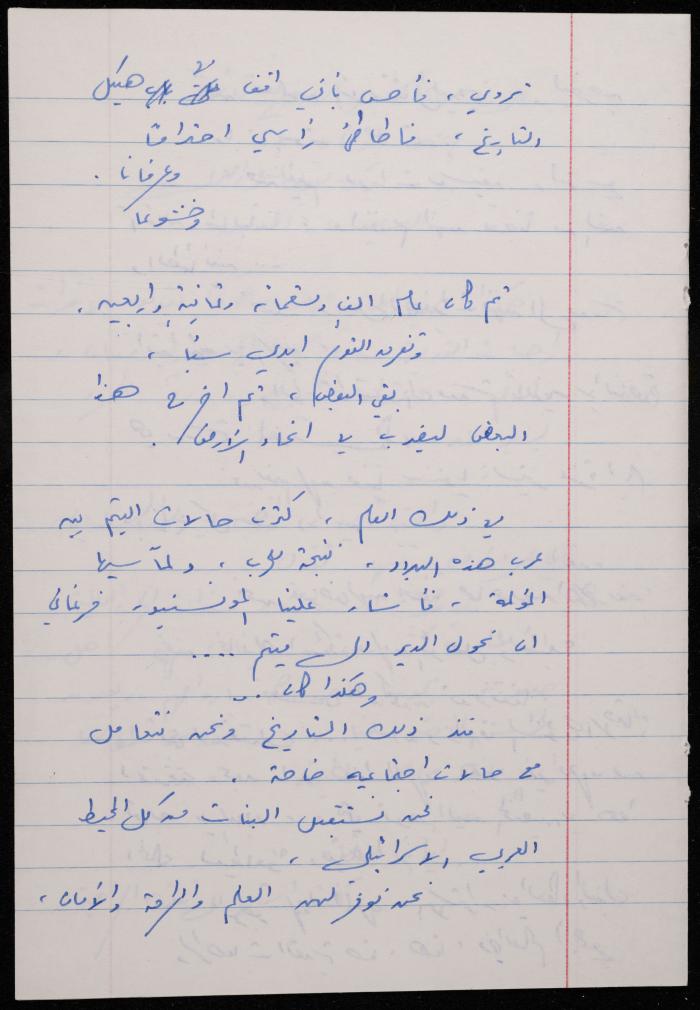 تروي، فأحس بأني اقف في هيكل
التاريخ، فأطأطئ رأسي احتراما
وعرفانا.
وخشوعا
ثم كان عام الف وتسعمائة وثمانية واربعين،
وتفرق القوم ايدي سبأ،
بقي البعض، ثم اخرج هذا
البعض ليضرب في انحاء الارض.
في ذلك العام، كثرت حالات اليتم بين
عرب هذه البلاد، نتيجة للحرب، ولمآسيها
المؤلمة، فأشار علينا المونسنيور فرغاني
ان نحول الدير الى ميتم ....
وهكذا كان..
منذ ذلك التاريخ ونحن نتعامل
مع حالات اجتماعية خاصة.
نحن نستقبل البنات من كل المحيط
العربي الاسرائيلي،
نحن نوفر لهن العلم والراحة والأمان،